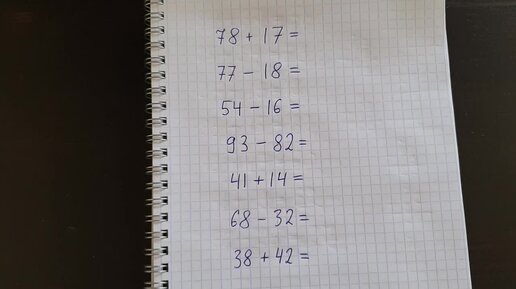 78 + 17 =
77 - 18 =
54 - 16 =
93 - 82 =
41 + 14 =
68 - 32 =
38 + 42 =